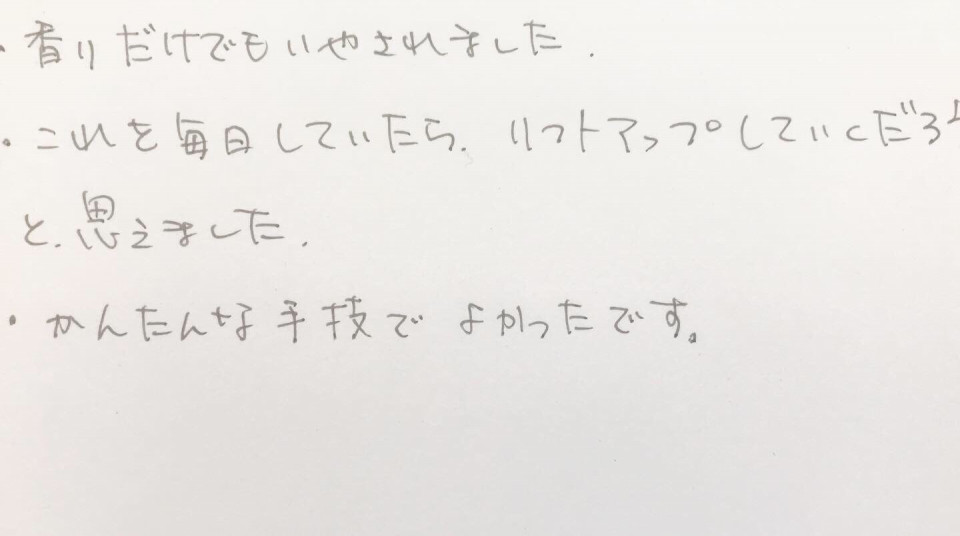 ・香りだけでもいやされました.
・これを毎日していたら. リフトアップしていくだろう
と. 思えました.
・かんたんな手技で よかったです。